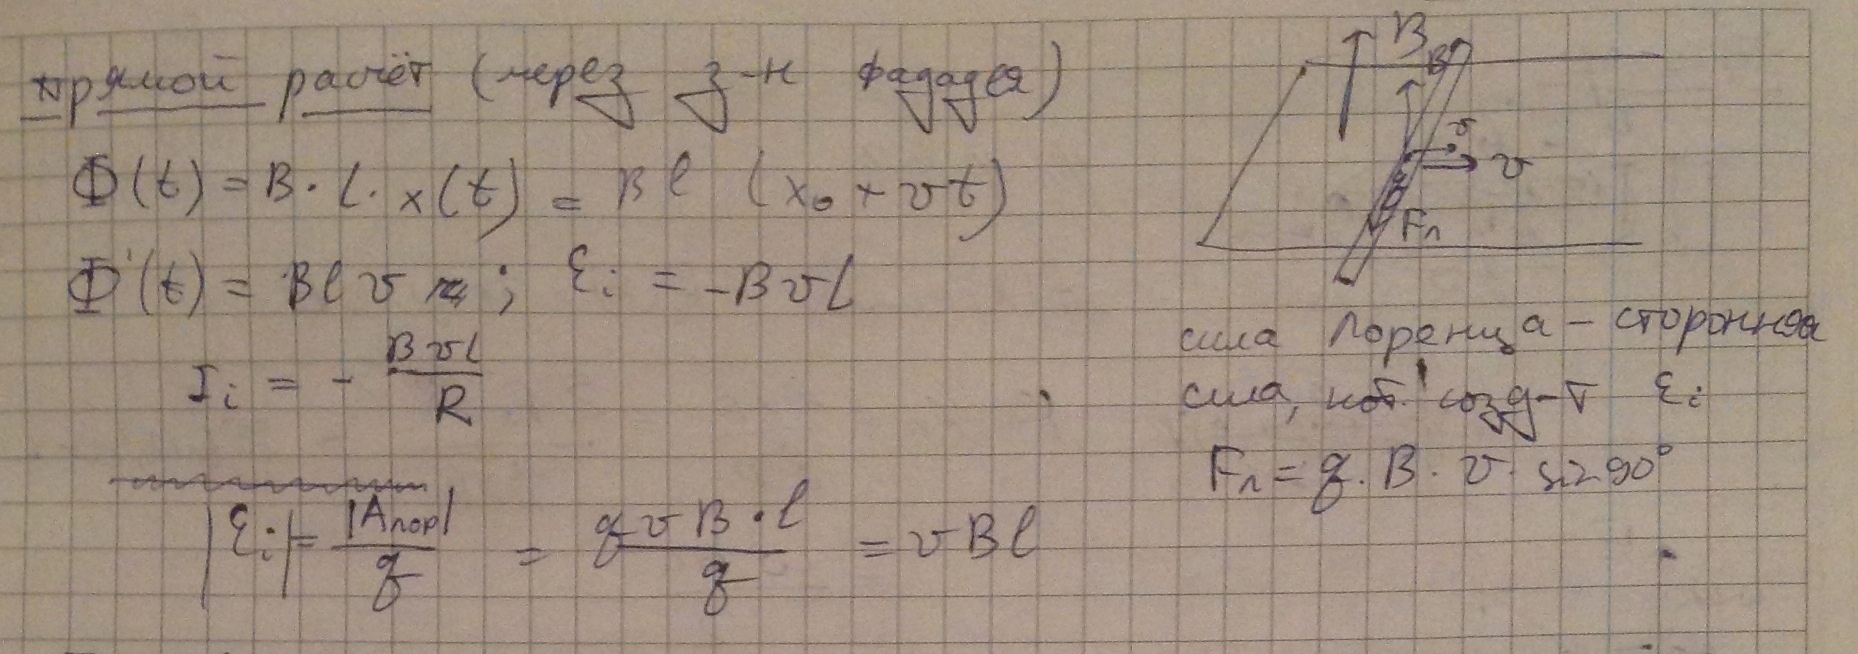 прямой расчёт (через з-н Фарадея)
Φ(t) = B · l · x(t) = Bl (x₀ + vt)
Φ'(t) = Blv ; Ɛi = -Bvl
Ii = - Bvl / R
|Ɛi| = |Aлор| / q = qvB·l / q = vBl
B
B
v
v
Fл
сила Лоренца – сторонняя
сила, кот. созд-т Ɛi
Fл = q · B · v · sin 90°